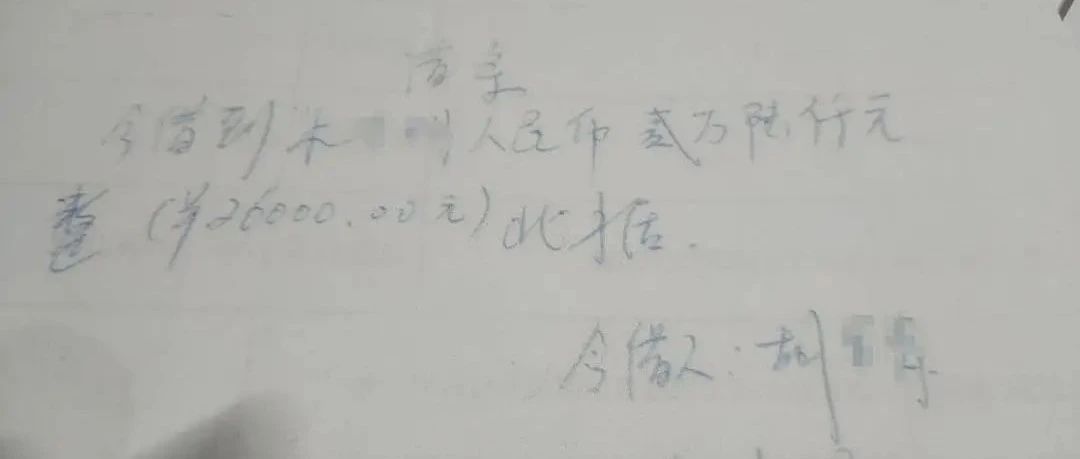 借条
今借到朱 人民币贰万陆仟元
整(¥26000.00元)此据.
今借人:胡